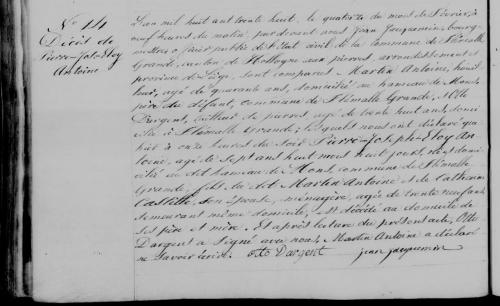 N° 14
Décès de
Pierre-Jos. Eloy
Antoine
L'an mil huit cent trente huit, le quatorze du mois de Février, à
neuf heures du matin, pardevant nous Jean Jacquemin, bourg-
mestre officier public de l'Etat civil de la commune de Flémalle
Grande, canton de Hollogne aux pierres, arrondissement et
province de Liège, sont comparus Martin Antoine, houil-
leur, agé de quarante ans, domicilié au hameau de Mons,
père du défunt, commune de Flémalle Grande, et Otto
Dargent, tailleur de pierres, agé de trente huit ans, domi-
cilié à Flémalle Grande; lesquels nous ont déclaré que
hier à onze heures du soir Pierre-Joseph-Eloy An-
toine, agé de sept ans huit mois huit jours, né et domi-
cilié au dit hameau de Mons, commune de Flémalle
Grande, fils du dit Martin Antoine et de Catherine
son épouse, ménagère, agée de trente neuf ans,
demeurant même domicile, est décédé au domicile de
ses père et mère. Et après lecture du présent acte, Otto
Dargent a signé avec nous, Martin Antoine a déclaré
ne savoir écrire. Otto Dargent Jean Jacquemin